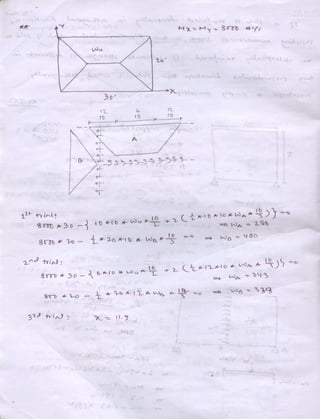 Y
Mx = My = 8500 #'/'
Wu
20'
X
30'
12 6 12
10 10 10
A
B
1st trial:
8500 * 30 - { 10 * 10 * Wu * 10/2 + 2 ( 1/2 * 10 * 10 * WA * 10/3 ) } = 0
⇒ WA = 255
8500 * 20 - 1/2 * 20 * 10 * WB * 10/3 = 0 ⇒ WB = 480
2nd trial:
8500 * 30 - { 6 * 10 * Wu * 10/2 + 2 ( 1/2 * 12 * 10 * WA * 10/3 ) } = 0
⇒ WA = 345
850 * 20 - 1/2 * 20 * 12 * WB * 12/3 = 0 ⇒ WB = 338
3rd trial: x = 11.9